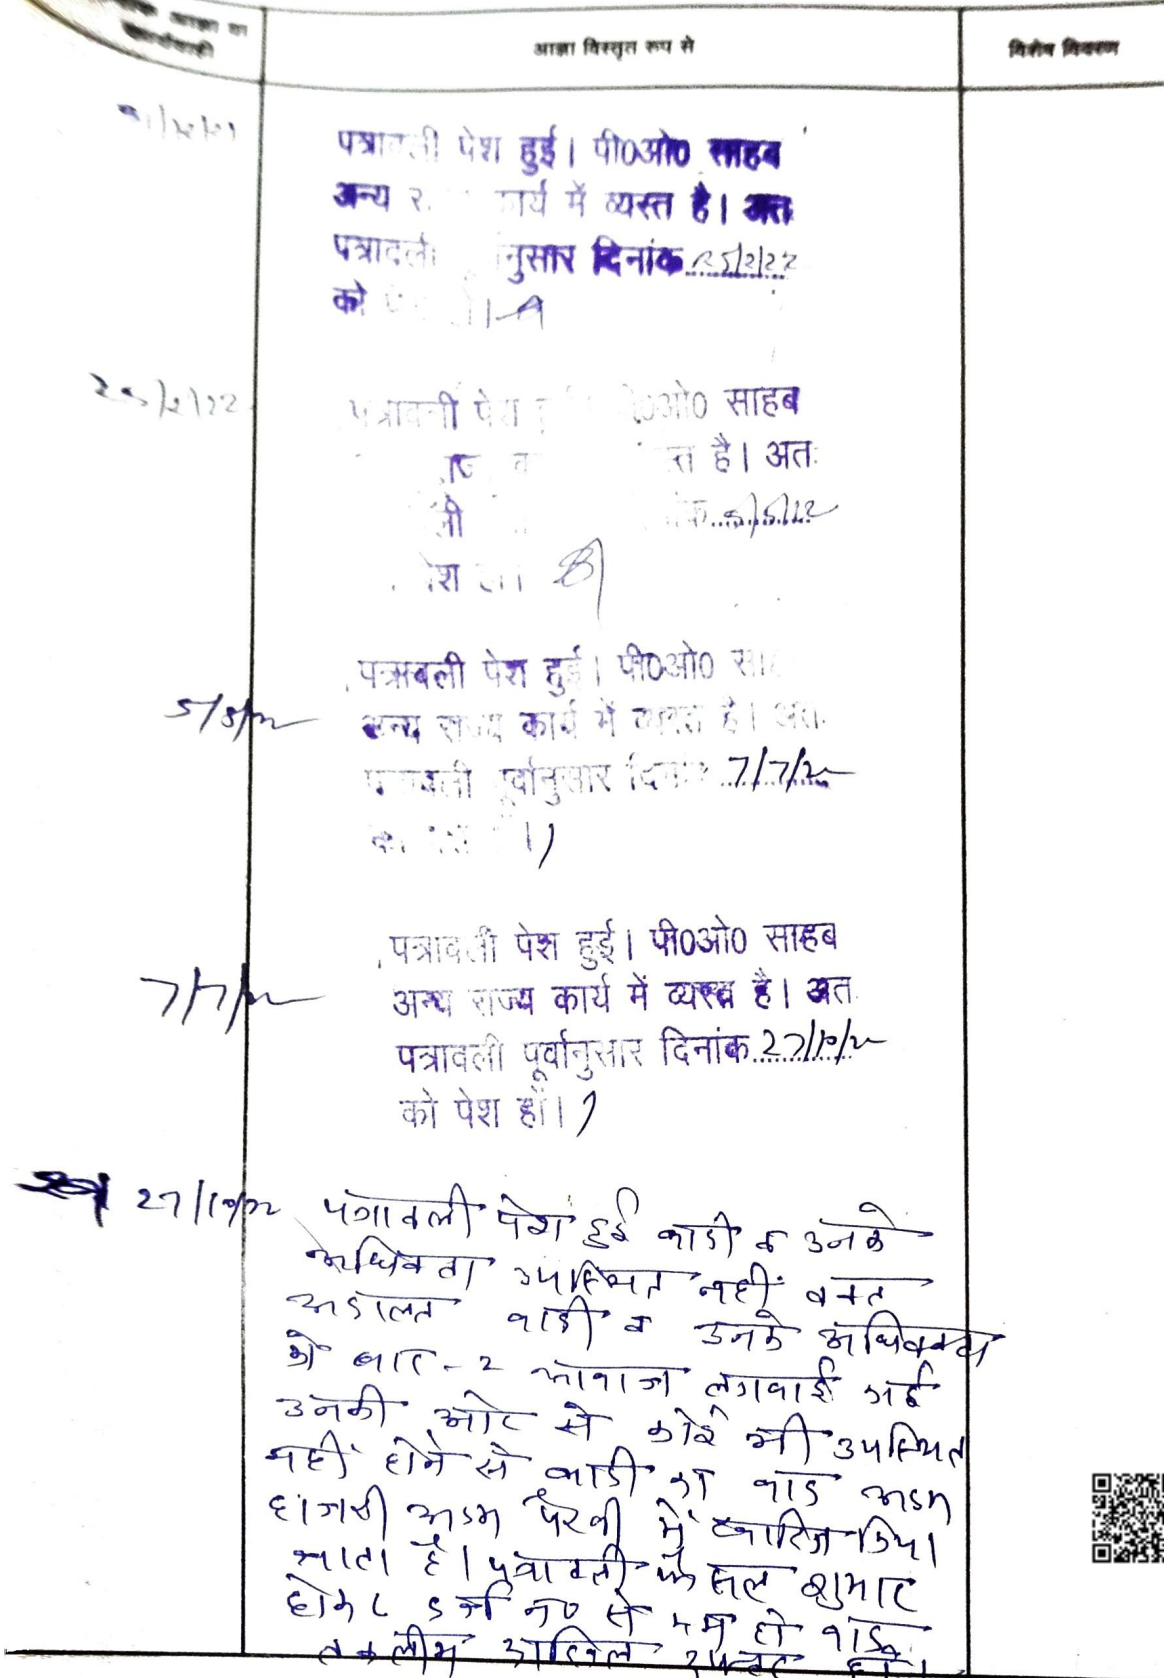 आज्ञा का
कार्यवाही
आज्ञा विस्तृत रूप से
विशेष विवरण
पत्रावली पेश हुई। पी0ओ0 साहब
अन्य कार्य में व्यस्त है। अत
पत्रावली दिनांक 25/2/22
को
25/2/22
पत्रावली पेश ओ0 साहब
है। अतः
5/5/22
पेश
पत्रावली पेश हुई। पी0ओ0
5/5/22
अन्य राज्य कार्य में व्यस्त है। अतः
पत्रावली पूर्वानुसार दिनांक 7/7/22
पत्रावली पेश हुई। पी0ओ0 साहब
7/7/22
अन्य राज्य कार्य में व्यस्त है। अत
पत्रावली पूर्वानुसार दिनांक 27/10/22
को पेश हों।
27/10/22 पत्रावली पेश हुई वादी व उनके
अधिवक्ता उपस्थित नहीं वक्त
अदालत वादी व उनके अधिवक्ता
को बार-2 आवाज लगवाई गई
उनकी ओर से कोई भी उपस्थित
नहीं होने से वादी का वाद अदम
हाजरी अदम पैरवी में खारिज किया
जाता है। पत्रावली फैसल शुमार
होकर दर्ज न0 से कम हो वाद
तकमील दाखिल दफ्तर हो।